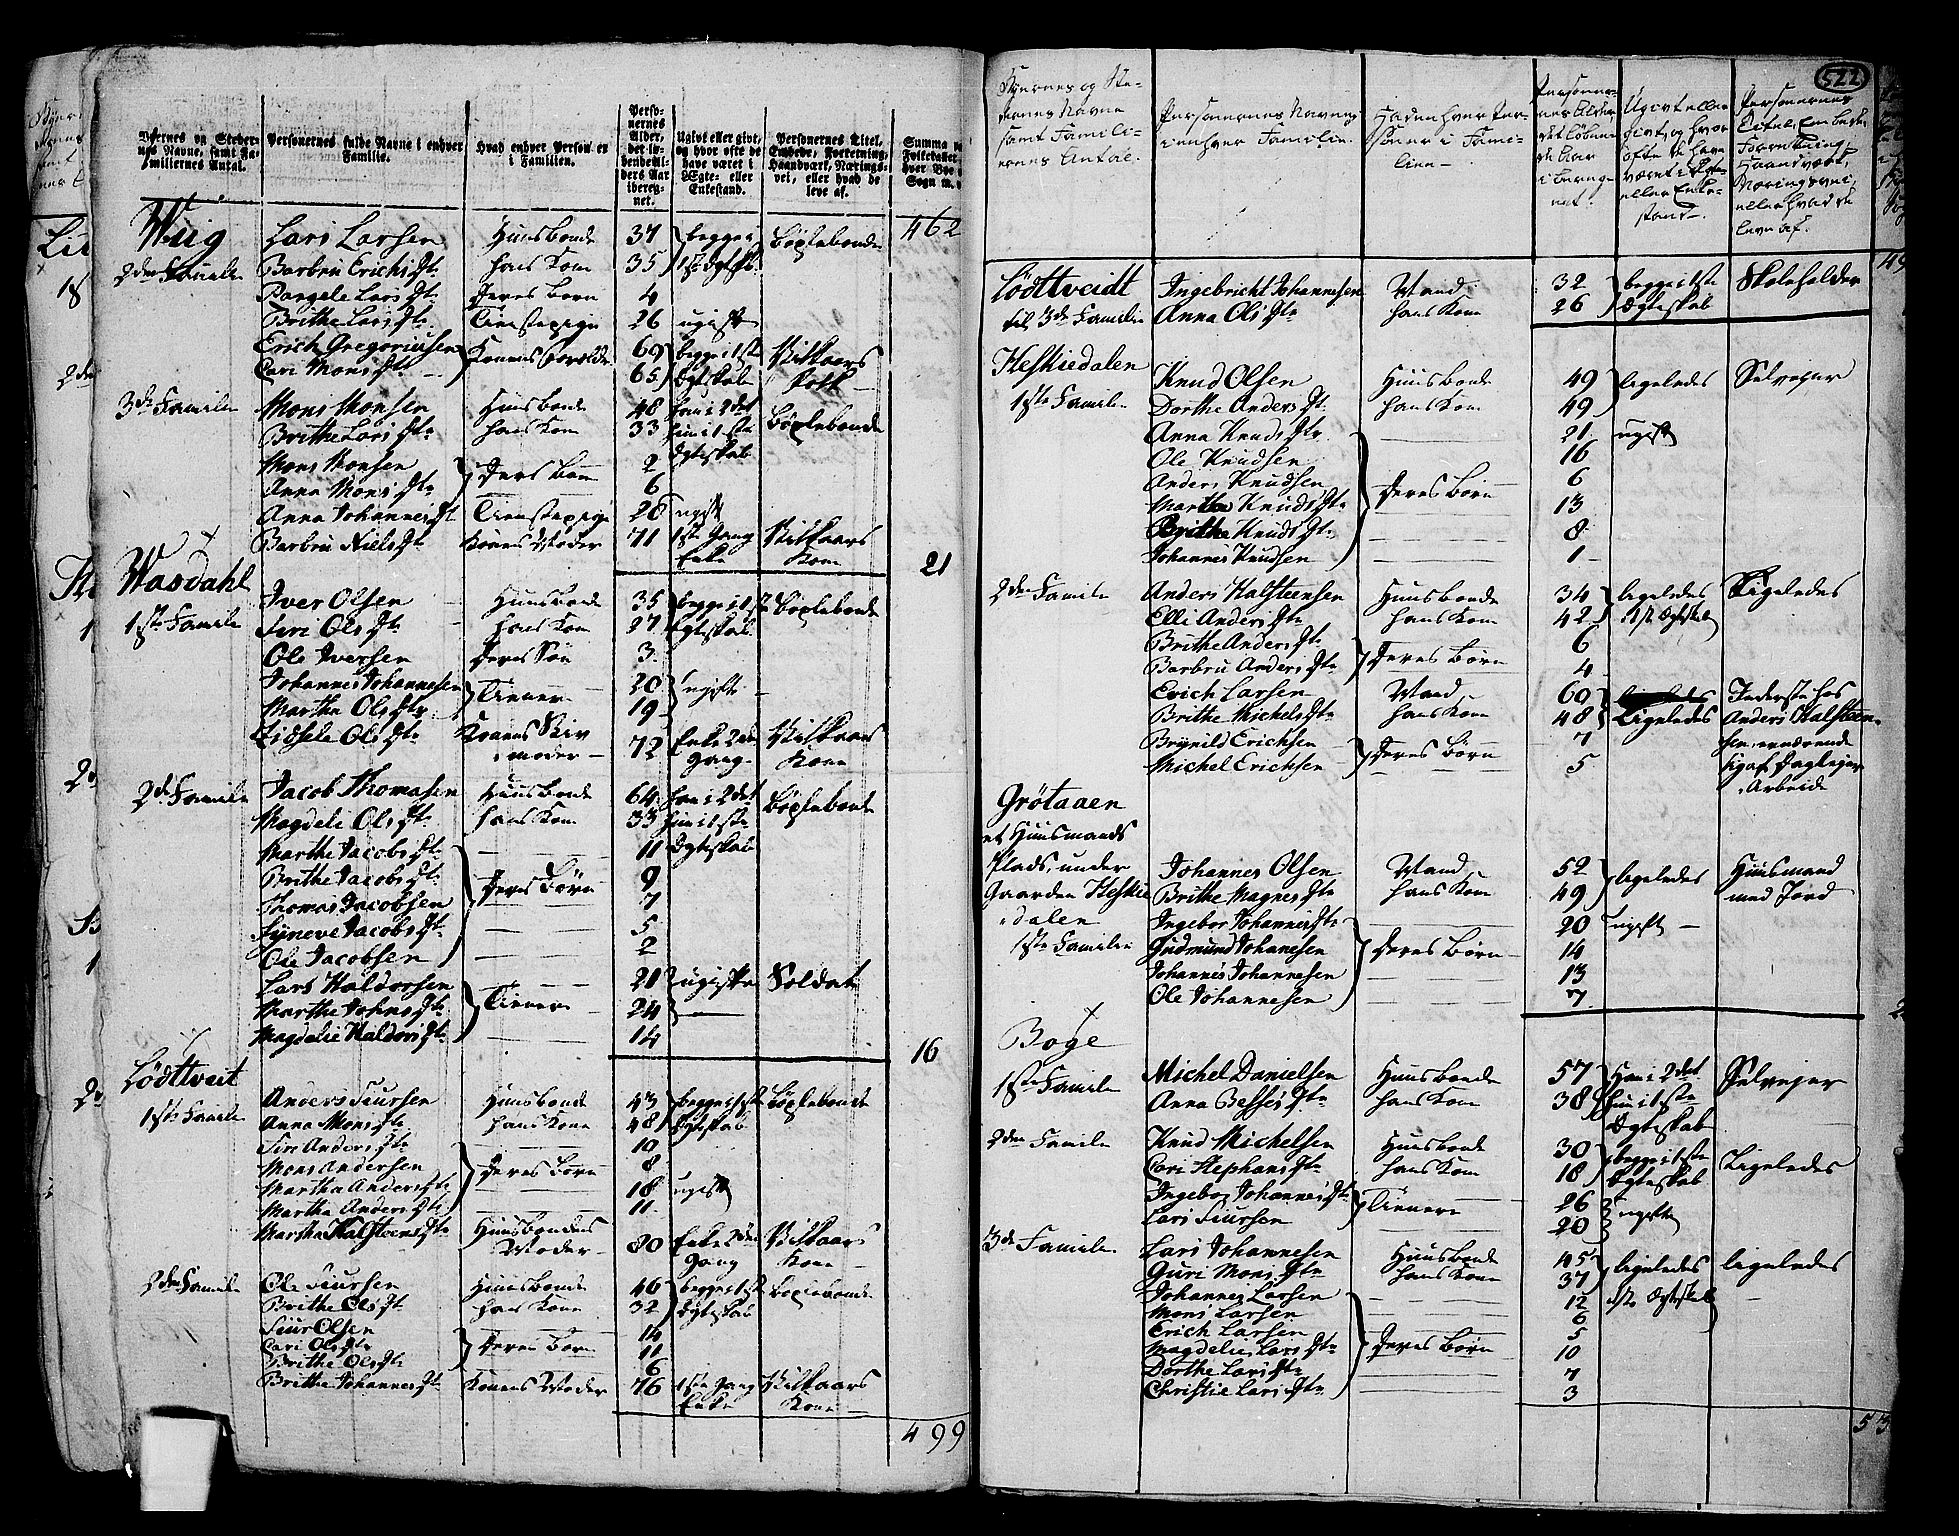 Byernes og Steder-
nes Navne, samt Fa-
miliernes Antal.
Personernes fulde Navne i enhver
Familie.
Hvad enhver Person er
i Familien.
Perso-
nernes
Alder,
det lø-
bende Al-
ders Aar
ibereg-
net.
Ugivt eller givt,
og hvor ofte de
have været i
Ægte- eller
Enkestand.
Personernes Titel,
Embede, Forretning,
Haandværk, Nærings-
vei, eller hvad de
leve af.
Summa
Folketallet
over
Sogn
Wiig Lars Larsen Huusbonde 37 begge i Böxlebonde 462
2den Familie Barbru Erichs Dtr hans Kone 35 1ste Ægtesk.
Rangele Lars Dtr Deres Barn 4
Brithe Lars Dtr Tienestepige 26 ugift
Erich Gregoriussen Konens Forældre 69 begge i 1ste Vilkaars
Cari Mons Dtr 65 Ægteskab Folk
3de Familie Mons Monsen Huusbonde 48 han i 2det Böxlebonde
Brithe Lars Dtr hans Kone 33 hun i 1ste
Ægteskab
Mons Monsen Deres Børn 2
Anna Mons Dtr 6
Anna Johannes Dtr Tienestepige 26 ugift
Barbru Niels Dtr Konens Moder 71 1ste Gang Vilkaars
Enke Kone 21
Wasdahl
1ste Familie Iver Olsen Huusbonde 35 begge i 1ste Böxlebonde
Siri Ols Dtr hans Kone 27 Ægteskab
Ole Iversen Deres Søn 3
Johannes Johannesen Tienere 20 ugifte
Marthe Ols Dtr 19
Zidsele Ols Dtr Konens Stiv- 72 Enke 2den Vilkaars
moder Gang Kone
2de Familie Jacob Thomasen Huusbonde 64 han i 2det Böxlebonde
Magdele Ols Dtr hans Kone 33 hun i 1ste
Marthe Jacobs Dtr 11 Ægteskab
Brithe Jacobs Dtr Deres Børn 9
Thomas Jacobsen 7
Syneve Jacobs Dtr 5
Ole Jacobsen 2
Lars Haldorsen Tienere 21 ugifte Soldat
Marthe Johns Dtr 24
Magdelie Haldors Dtr 14
16
Lödttveit
1ste Familie Anders Siursen Huusbonde 43 begge i 1ste Böxlebonde
Anna Mons Dtr hans Kone 48 Ægteskab
Siri Anders Dtr 10
Mons Andersen Deres Børn 8
Martha Anders Dtr 18 ugift
Martha Anders Dtr 11
Martha Halsteens Dtr Huusbondes 80 Enke 2den Vilkaars
Moder Gang Kone
2den Familie Ole Siursen Huusbonde 46 begge i 1ste Böxlebonde
Brithe Ols Dtr hans Kone 32 Ægteskab
Siur Olsen 14
Cari Ols Dtr Deres Børn 11
Brithe Ols Dtr 6
Brithe Johannes Dtr Konens Moder 76 1ste Gang Vilkaars
Enke Kone
499
522
Byernes og Ste-
dernes Navne
samt Famili-
ernes Antal.
Personernes Navne
i enhver Familie.
Hvad enhver Per-
son er i Fami-
lien
Personer-
nes Alder
det löben-
de Aar
i bereg-
net
Ugivt eller
givt, og hvor
ofte de have
været i Ægte-
eller Enke-
stand
Personernes
Titel, Embede
Forretning,
Haandvært,
Næringsvei,
eller hvad de
leve af.
Lödttveidt Ingebricht Johannesen Mand 32 begge i 1ste Skoleholder 49
til 3de Familie Anna Ols Dtr hans Kone 26 Ægteskab
Heskiedalen
1ste Familie Knud Olsen Huusbonde 49 ligeledes Selvejer
Dorthe Anders Dtr hans Kone 49
Anna Knuds Dtr 21 ugift
Ole Knudsen 16
Anders Knudsen Deres Børn 6
Marthe Knuds Dtr 13
Brithe Knuds Dtr 8
Johannes Knudsen 1
2den Familie Anders Halsteensen Huusbonde 34 ligeledes Ligeledes
Elli Anders Dtr hans Kone 42 1ste Ægteskab
Brithe Anders Dtr 6
Barbru Anders Dtr Deres Børn 4
Erich Larsen Mand 60 Inderste hos
Brithe Michels Dtr hans Kone 48 Ligeledes Anders Halsteen-
Brynild Erichsen Deres Børn 7 sen, ernærende
Michel Erichsen 5 sig af Dagleier
Arbeide
Grötaaen
et Huusmands
Plads, under
Gaarden Heskie
dalen
1ste Familie
Johannes Olsen Mand 52 ligeledes Huusmand
Brithe Magnes Dtr hans Kone 49 med Jord
Ingebor Johannes Dtr 20 ugift
Gudmund Johanesen Deres Børn 14
Johannes Johannesen 13
Ole Johannesen 7
Boge
1ste Familie Michel Danielsen Huusbonde 57 Han i 2det Selvejer
Anna Besses Dtr hans Kone 38 hun i 1ste
Ægteskab
2den Familie Knud Michelsen Huusbonde 30 begge i 1ste Ligeledes
Cari Stephans Dtr hans Kone 18 Ægteskab
Ingebor Johannes Dtr Tienere 26 ugifte
Lars Siursen 20
3de Familie Lars Johannesen Huusbonde 45 ligeledes ligeledes
Guri Mons Dtr hans Kone 37 1ste Ægteskab
Johannes Larsen 12
Mons Larsen 6
Erich Larsen 5
Magdelie Lars Dtr Deres Børn 10
Dorthe Lars Dtr 7
Christie Lars Dtr 3
53